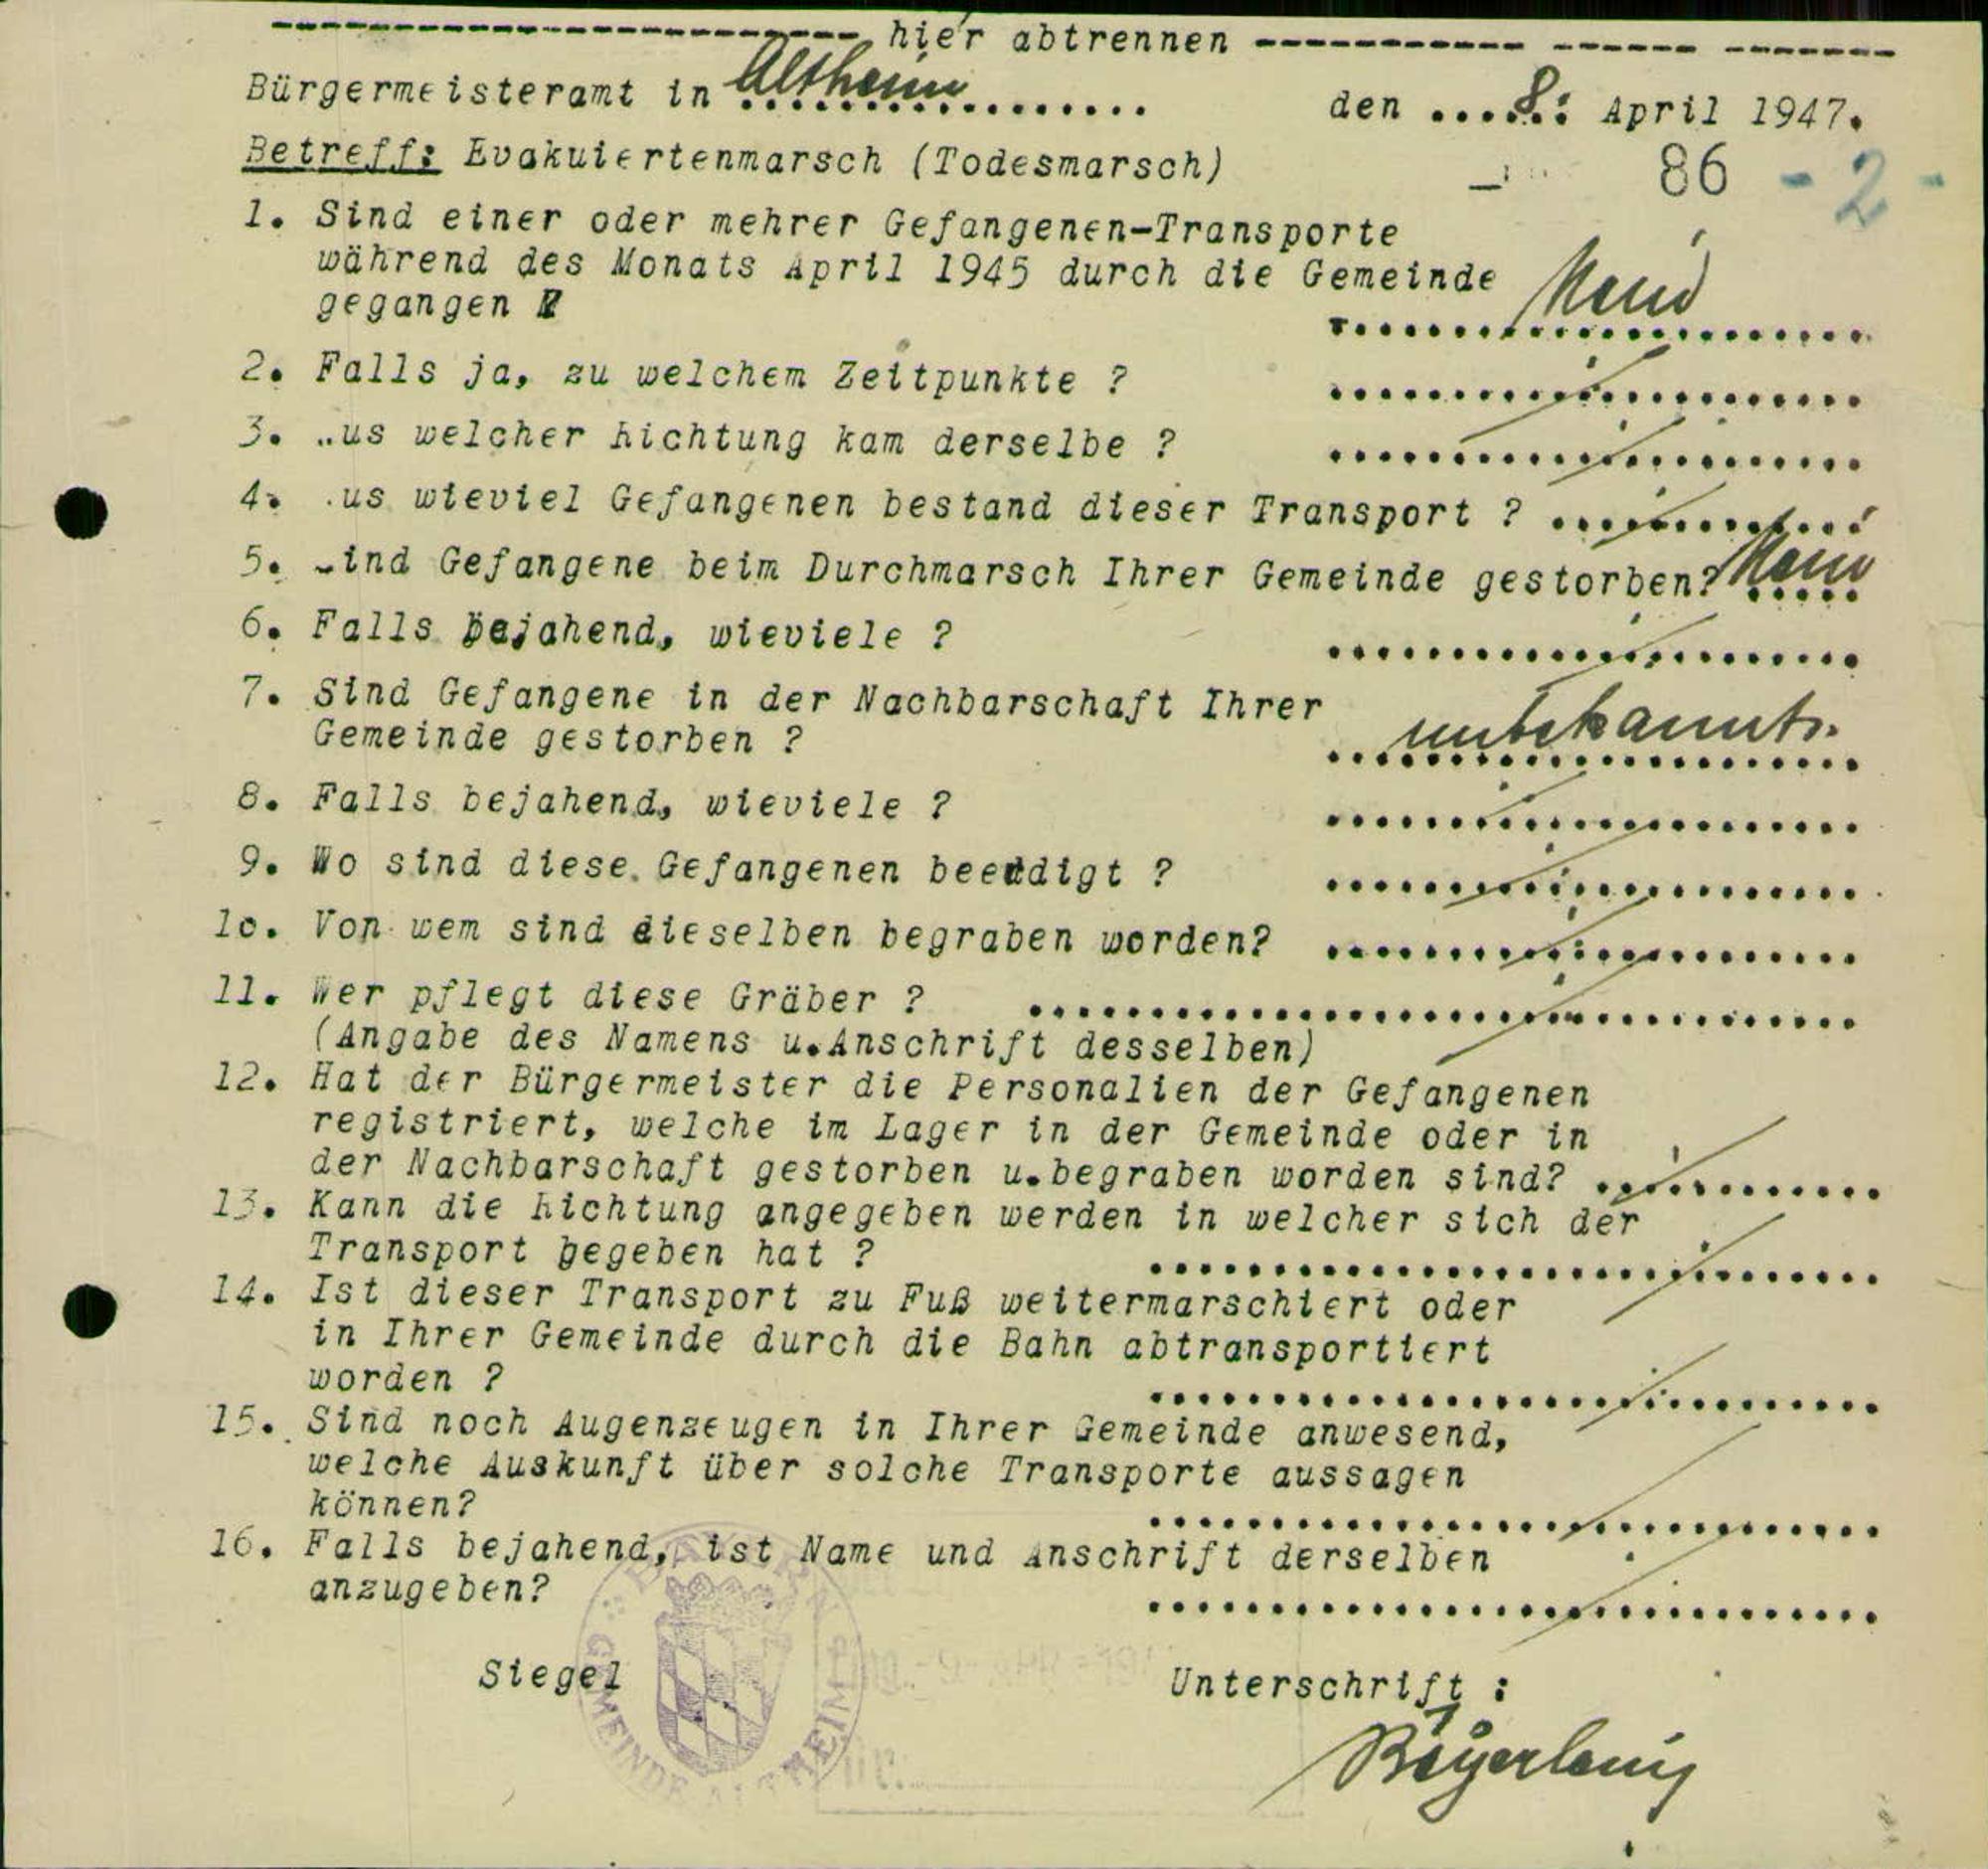 -------------------- hier abtrennen -------------------
Bürgermeisteramt in Altheim den 8. April 1947.
Betreff: Evakuiertenmarsch (Todesmarsch)
86 - 2 -
1. Sind einer oder mehrer Gefangenen-Transporte
während des Monats April 1945 durch die Gemeinde
gegangen ? Nein
2. Falls ja, zu welchem Zeitpunkte ? ......................
3. Aus welcher Richtung kam derselbe ? ......................
4. Aus wieviel Gefangenen bestand dieser Transport ? .............
5. Sind Gefangene beim Durchmarsch Ihrer Gemeinde gestorben? Nein
6. Falls bejahend, wieviele ? ......................
7. Sind Gefangene in der Nachbarschaft Ihrer
Gemeinde gestorben ? unbekannt.
8. Falls bejahend, wieviele ? ......................
9. Wo sind diese Gefangenen beerdigt ? ......................
10. Von wem sind dieselben begraben worden? ......................
11. Wer pflegt diese Gräber ? ..................................
(Angabe des Namens u.Anschrift desselben)
12. Hat der Bürgermeister die Personalien der Gefangenen
registriert, welche im Lager in der Gemeinde oder in
der Nachbarschaft gestorben u.begraben worden sind? ............
13. Kann die Richtung angegeben werden in welcher sich der
Transport begeben hat ? ..............................
14. Ist dieser Transport zu Fuß weitermarschiert oder
in Ihrer Gemeinde durch die Bahn abtransportiert
worden ? ..............................
15. Sind noch Augenzeugen in Ihrer Gemeinde anwesend,
welche Auskunft über solche Transporte aussagen
können? ..............................
16. Falls bejahend, ist Name und Anschrift derselben
anzugeben? ..............................
BAYERN
GEMEINDE ALTHEIM
Siegel Unterschrift :